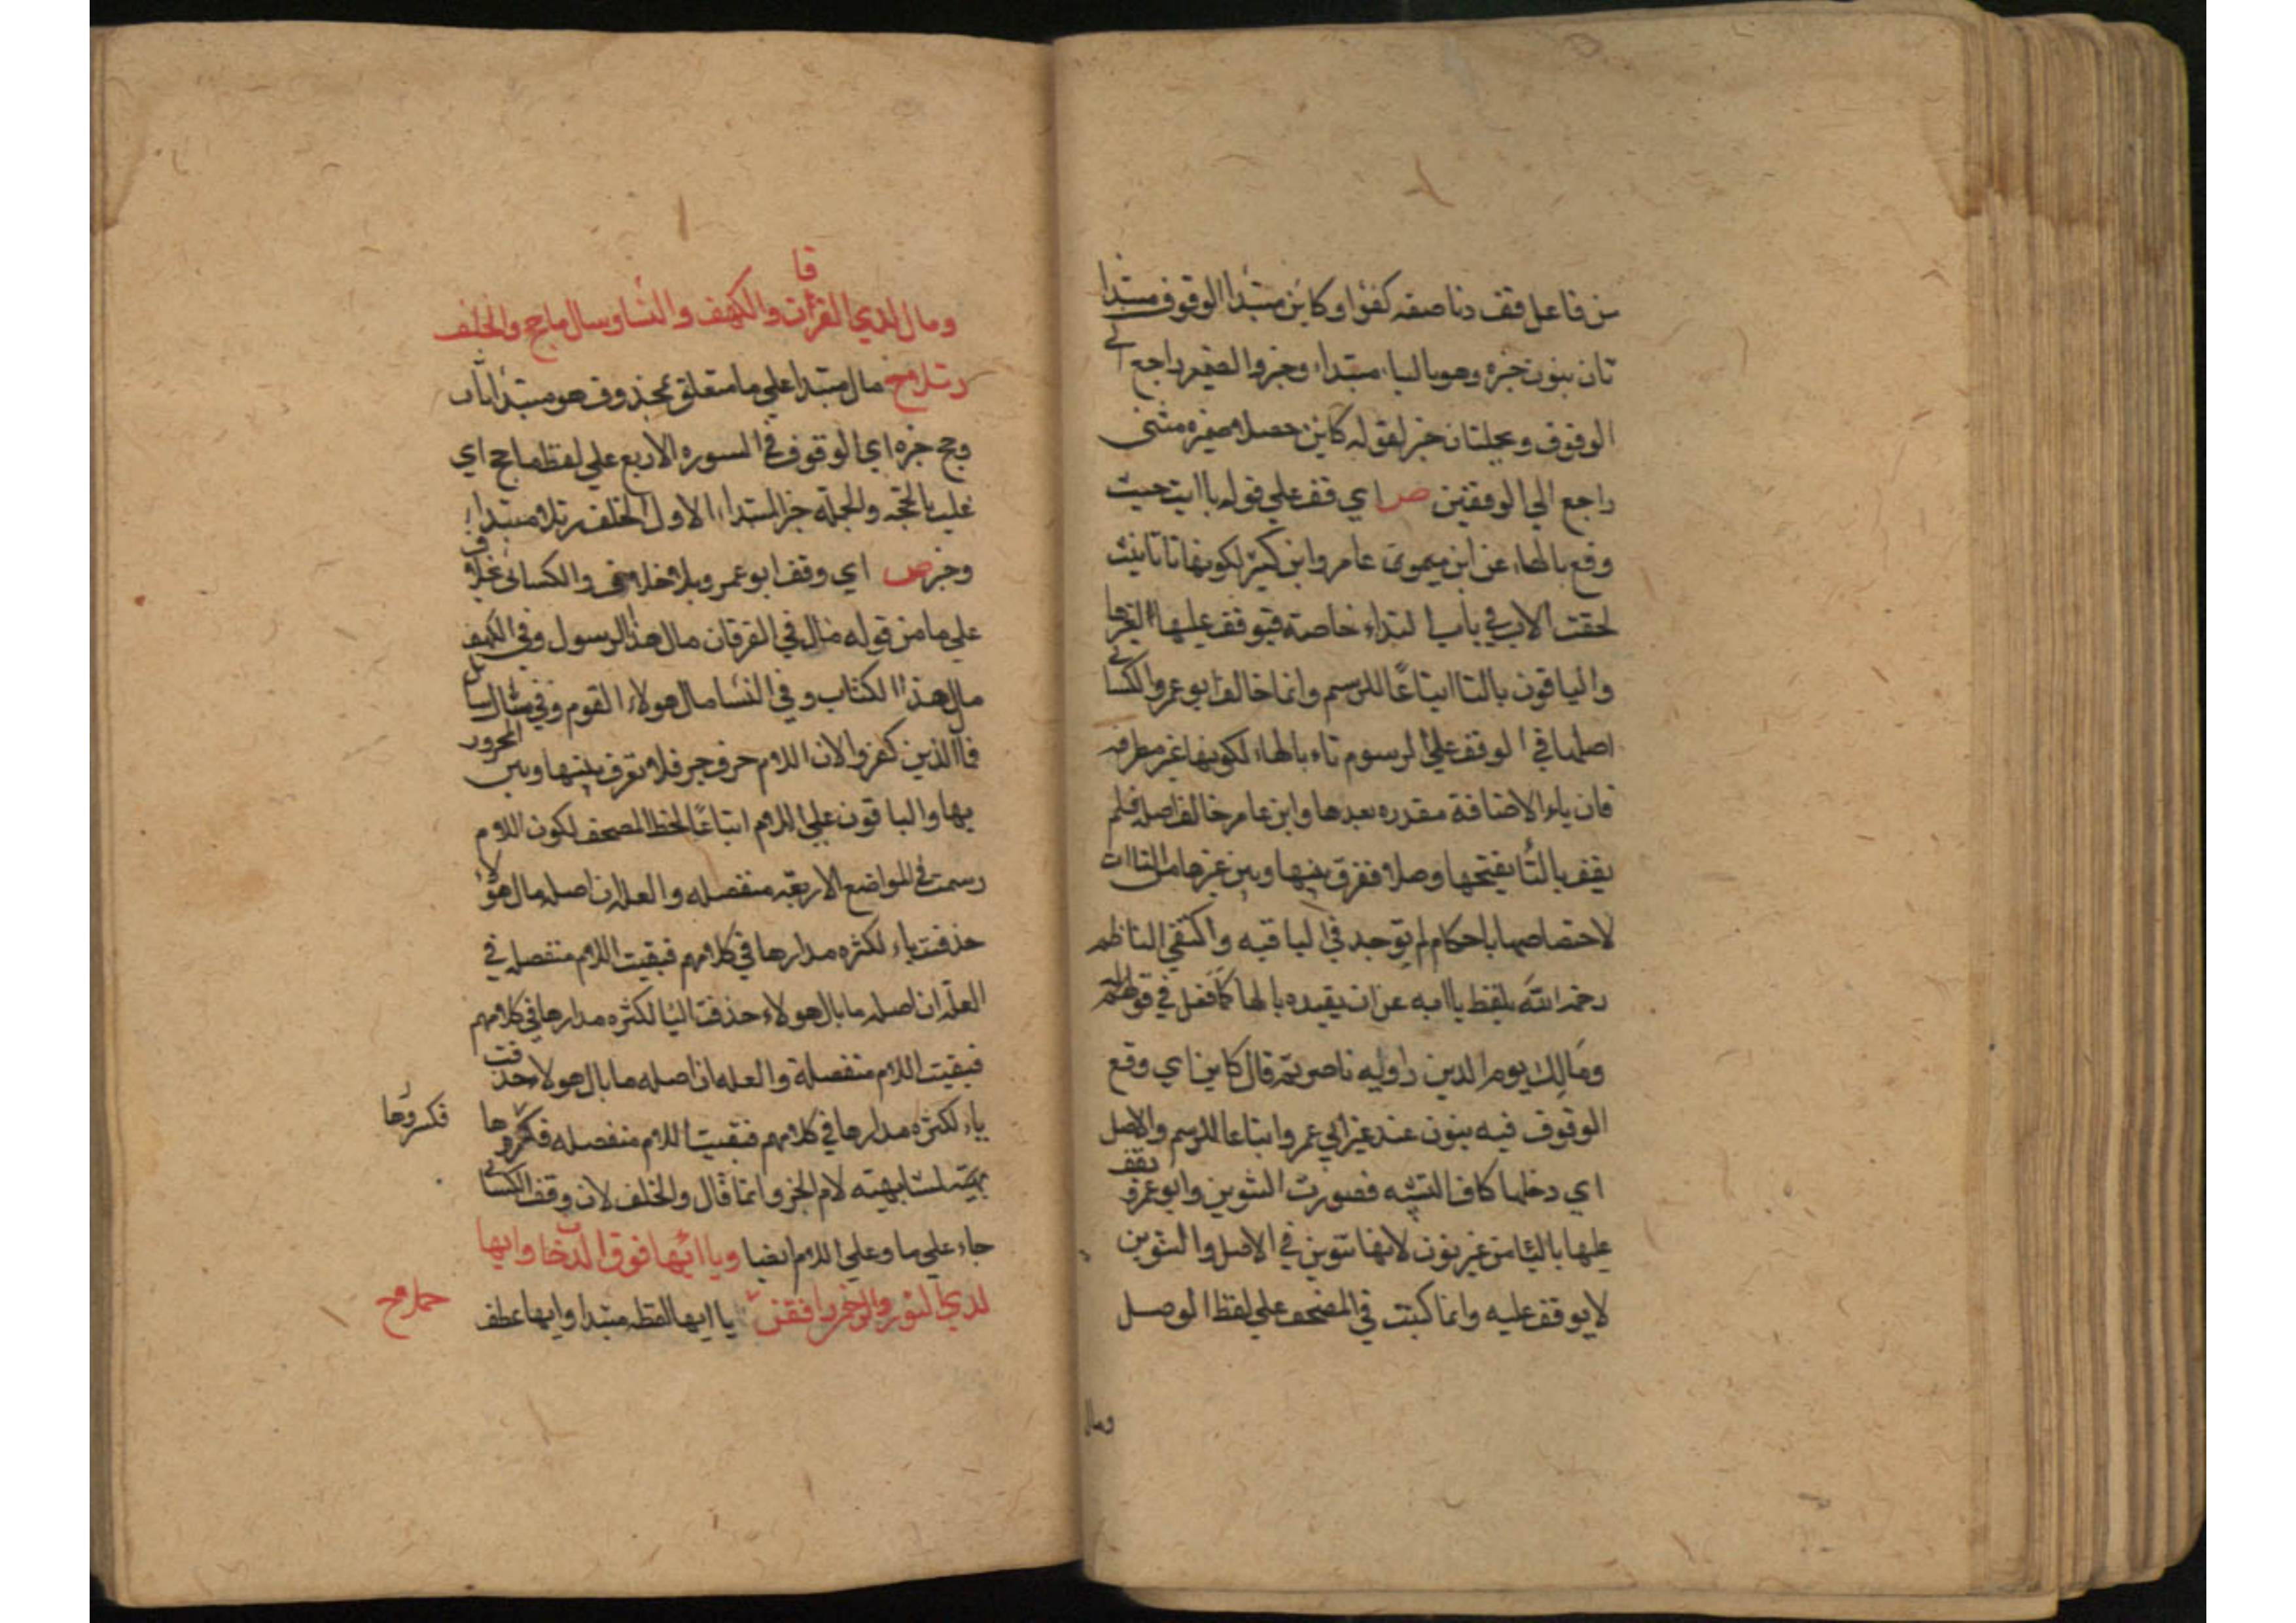 من فاعل قف دنا صفه كفؤا وكاين مبتدا الوقوف مبتدا
ثان بنون خبره وهو بالياء مبتداء وخبر والضمير راجع الى
الوقوف وبجلتان خبر لقوله كاين حصلا ضميره مثنى
راجع الي الوقفين ص اي قف علي قوله يا ابت حيث
وقع بالهاء عن ابن عامر وابن كثير لكونها تا تانيث
لحقت الاب في باب النداء خاصة فيوقف عليها
والباقون بالتا اتباعًا للرسم وانما خالف ابو عمرو والكسائي
اصلهما في الوقف علي المرسوم تاء بالهاء لكونها غير
فان ياء الاضافة مقدره بعدها وابن عامر خالف اصله فلم
يقف بالتا بفتحها وصلا ففرق بينها وبين غيرها من التاات
لاختصاصها باحكام لم توجد في الباقيه واكتفي الناظم
رحمه الله بلفظ يا ابه عن ان يقيده بالها كما فعل في قوله
ومالك يوم الدين راويه ناصر ثم قال كاين اي وقع
الوقوف فيه بنون عند غير ابي عمرو اتباعا للرسم والاصل
اي دخلها كاف التشبه فصورت التنوين وابو عمرو يقف
عليها باليا من غير نون لانها تنوين في الاصل والتنوين
لا يوقف عليه وانما كتبت في المصحف علي لفظ الوصل
ومال
ومال لدي الفرقان والكهف والنسا وسال ما حج والخلف
رتلا مح مال مبتدا علي ما متعلق بمحذوف هو مبتدا ثان
وحج خبره اي الوقوف في السوره الاربع علي لفظ ما حج اي
غلب بالحجة والجملة خبر المبتداء الاول الخلف رتلا مبتدا
وخبر ص اي وقف ابو عمرو بلا خلاف والكسائي بخلاف
علي ما من قوله مال في الفرقان مال هذا الرسول وفي الكهف
مال هذا الكتاب وفي النسا مال هولاء القوم وفي سال سائل
فمال الذين كفروا لان اللام حرف جر فلا تفرق بينها وبين المجرور
بها والباقون علي اللام اتباعًا لخط المصحف لكون اللام
رسمت في المواضع الاربعة منفصله والعلة ان اصله مال هؤلا
حذفت ياء لكثره مدارها في كلامهم فبقيت اللام منفصله في
العلة ان اصله ما بال هولاء حذفت اليا لكثره مدارها في كلامهم
فبقيت اللام منفصلة والعله ان اصله ما بال هولاء حذفت
ياء لكثره مدارها في كلامهم فبقيت اللام منفصله فكسروها
فكسروها
لمشابهته لام الجر وانما قال والخلف لان وقف الكسائي
جاء علي ما وعلي اللام ايضا ويا ايها فوق الدخان وايها
لدي النور والرحمن رافقن يا ايها لفظه مبتدا وايها عطف
حملا مح